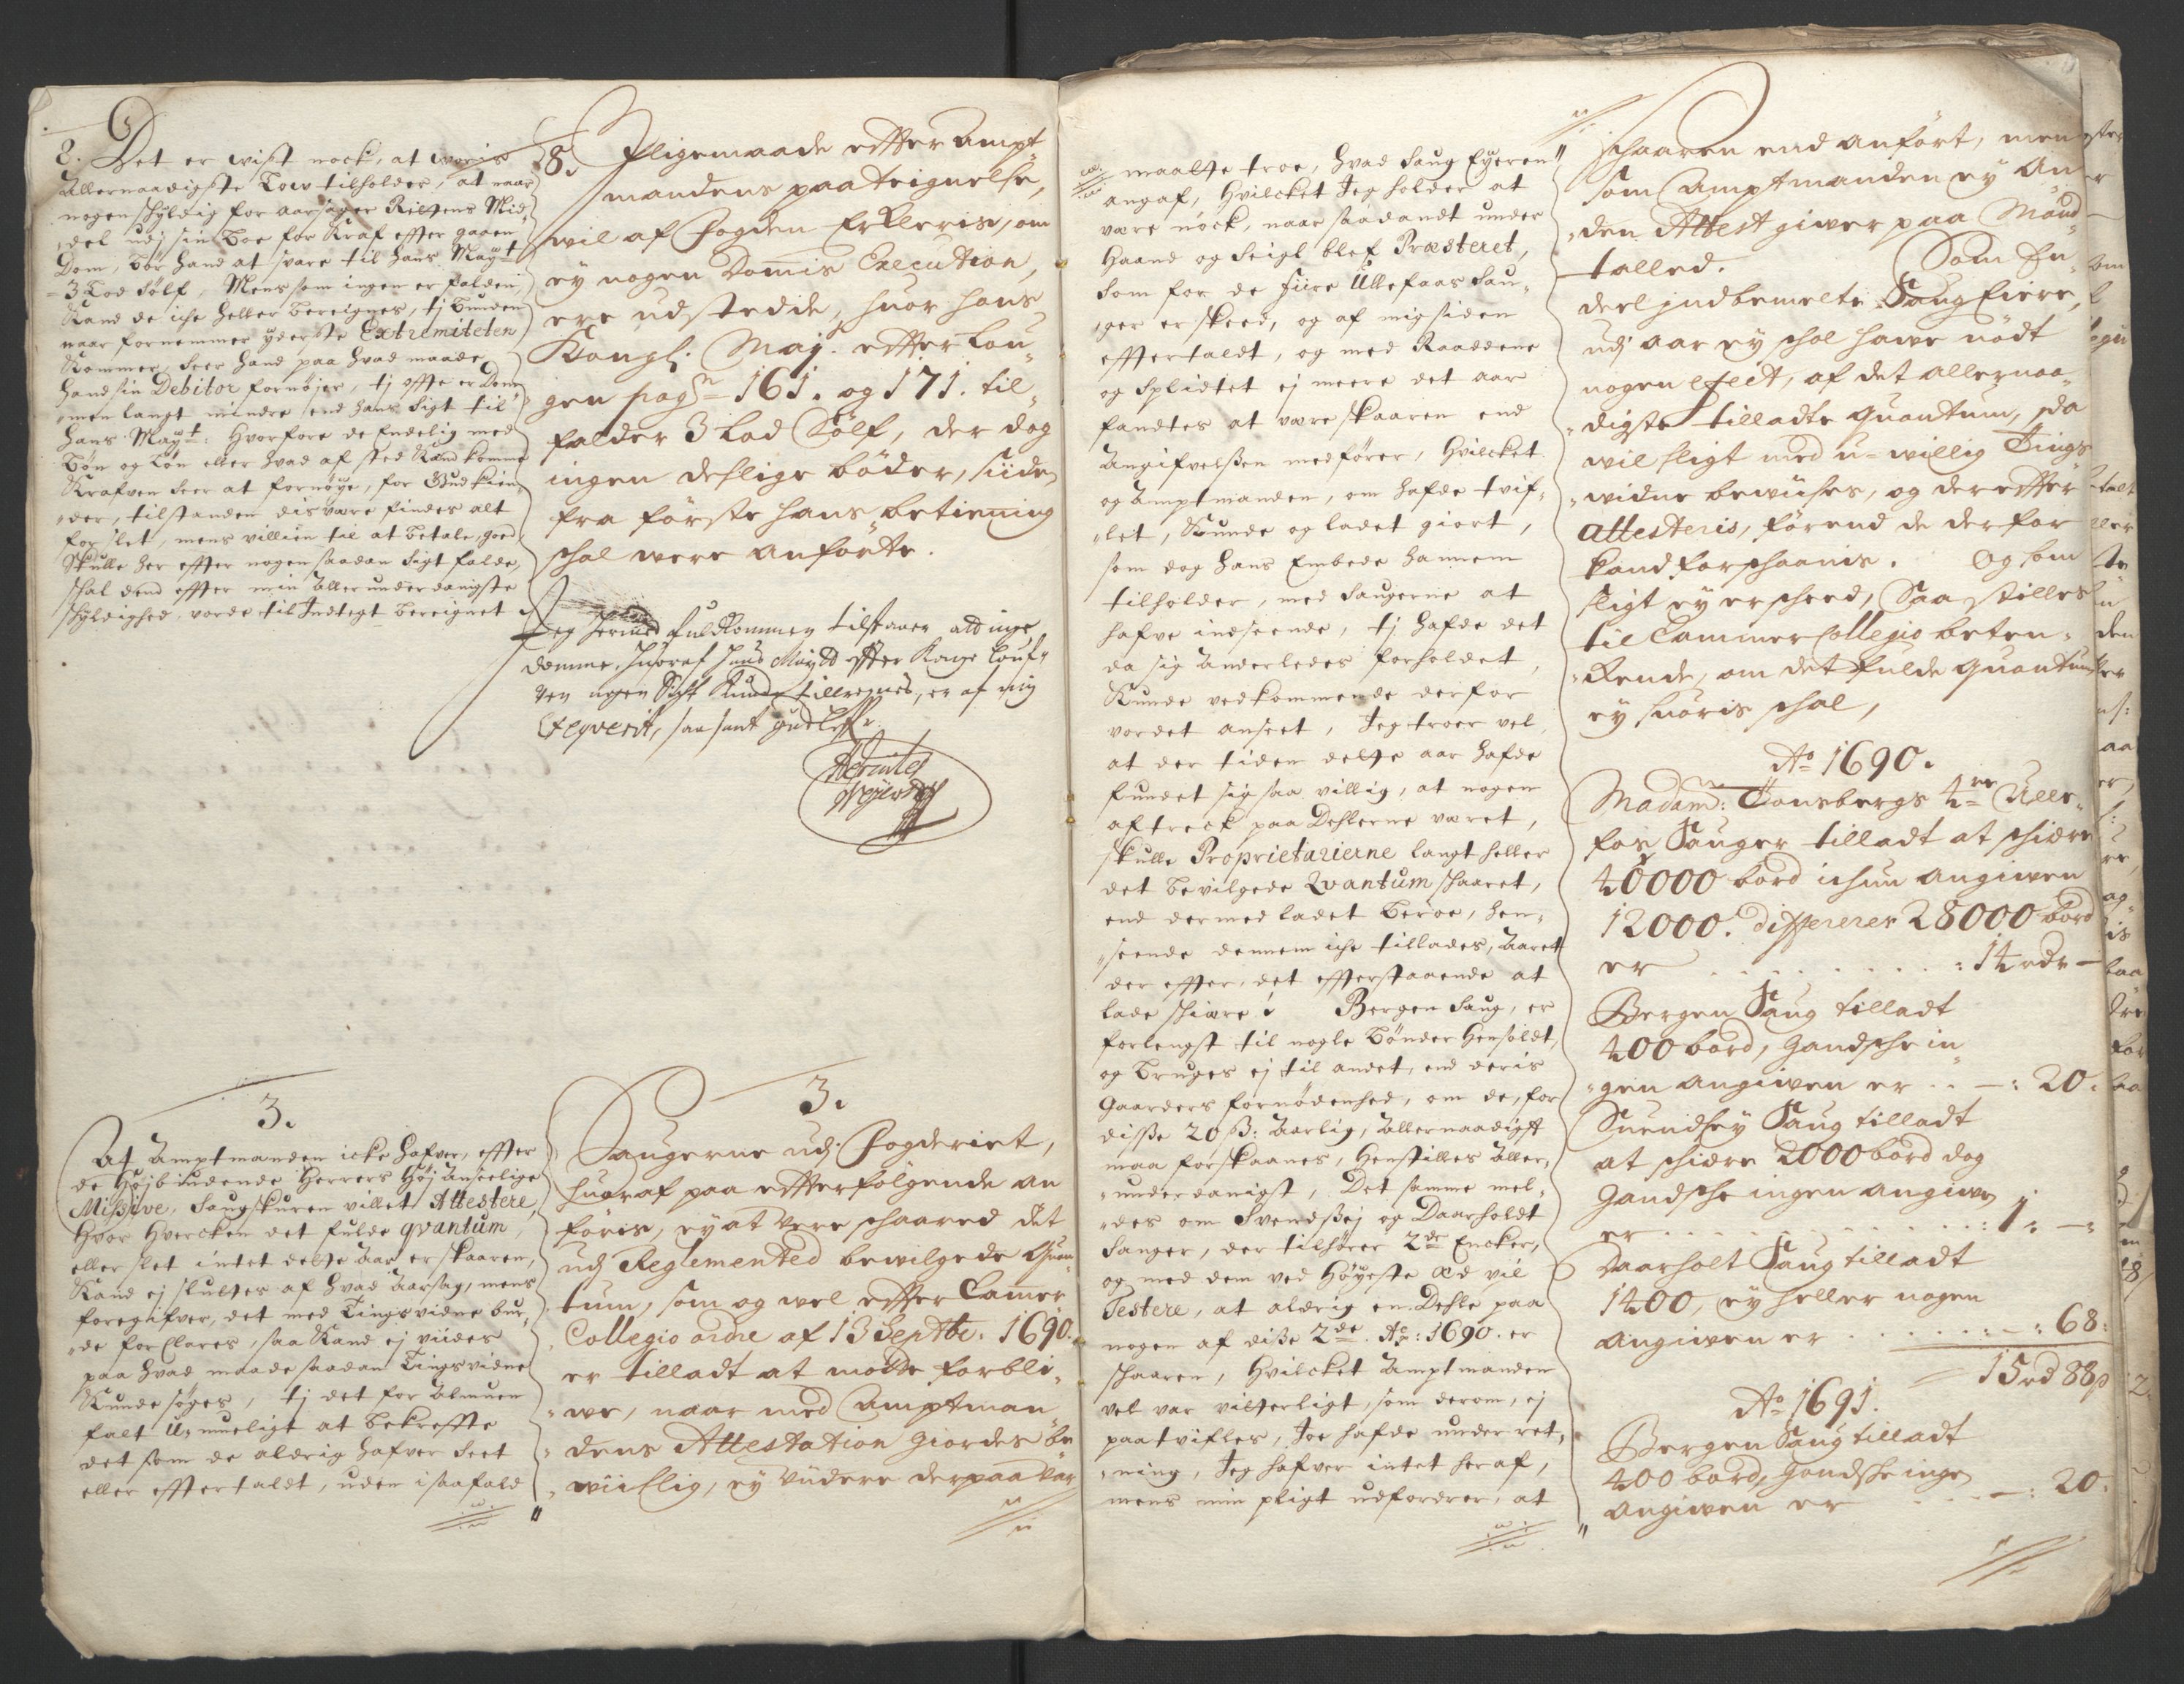 8. Det er wist nock, at woris
Allernaadigste Low tilholder, at naar
nogen schyldig for aarsager Rettens Mid¬
del udj sin Boe for Kraf effter gaaen
Dom, bør hand at svare til hans Mayt
3 Lod Sølf, Mens som ingen er falden,
Kand de iche heller bereignes, tj bunden
naar fornemmer yderste Extremiteten
Kommer, seer hand paa hvad maade
hand sin Debitor fornøjer, tj offte er Dom¬
men langt mindre end hans Sigt til
hans Mayt: Hvorfore de Endelig med
bøn og Løn eller hvad af sted Kand komme
Krafven seer at fornøye, for Gud kien¬
der, tilstanden disvære findes alt
for slet, mens villien til at betale, goed
Skulle her effter nogen saadan Sigt falde,
schal dend effter min aller underdanigste
schyldighed vorde til Indtegt bereignet
8. Jligemaade effter Ampt
mandens paateignelse,
wil af Fogden Erkleris, om
ey nogen Domis Execution,
ere udstedde, huor hans
Kongl: May: effter Lou¬
gen pagn 161. og 171. til¬
falder 3 Lod Sølf, der dog
ingen deslige bøder, siiden
fra første hans betiening
schal were anførte.
Jeg hermed fuldkommen tilstaaer att ingen
domme, huoraf Hans Maytt effter Konge Louf¬
ven nogen Sigt Kunde tillregnes, er af mig
Exeqverit, saa sant gud
3.
At Amptmanden icke hafver, effter
de Højbiudende Herrers Høj Anseelige
Missive, Saugskuren villet Attestere,
Hvor Hvercken det fulde qvantum,
eller slet intet dette Aar er skaaren,
Kand ej sluttes af hvad Aarsag, mens
foregifver, det med Tingsvidne bur¬
de forclares, saa Kand ej viides
paa hvad maade saadan Tingsvidne
Kunde søges, tj det for Almuen
falt U-mueligt at bekreffte
det som de aldrig hafver seet
eller efftertaldt, uden isaafald
3.
Saugerne udj Fogderiet,
huoraf paa effterfølgende an
føris, ey at vere schaared det
udj Reglemented bewilgede Quan¬
tum, som og wel effter Camer
Collegio ordre af 13 Septbr: 1690.
er tilladt at motte forbli¬
we, naar med Amptman¬
dens Attestation giordes be¬
wiislig, ey viidere derpaa var
maatte troe, hvad Saug Eyeren
angaf, Hvilcket Jeg holder at
være nock, naar saadandt under
Haand og Seigl blef Præsteret,
Som for de fiire Ullefaas Sau¬
ger er skeed, og af mig siden
efftertaldt, og med Raaddene
og Splidtet ej meere det aar
fandtes at være skaaren end
Angifvelsen medfører, Hvilcket
og Amptmanden, om hafde tvif¬
let, Kunde og ladet giort,
som dog hans Embede hannem
tilholder, med Saugerne at
hafve indseende, tj hafde det
da sig Anderledes forholdet,
Kunde vedkommende derfor
vordet anseet, Jeg troer vel
at der tiden dette aar hafde
fundet sig saa villig, at nogen
aftreck paa Dehlerne været,
skulle Proprietarierne langt heller
det bevilgede Qvantum schaaret,
end dermed ladet beroe, hen¬
seende dennem iche tillades, Aaret
der effter, det effterstaaende at
lade schiære / Bergen Saug, er
forlengst til nogle Bønder Hensoldt,
og bruges ej til andet, end deris
Gaarders fornødenhed, om de, for
disse 20 ß: Aarlig, Allernaadigst
maa forskaanes, Henstilles Aller¬
underdanigst, Det samme mel¬
des om Svendsej og Daarholdt
Sauger, der tilhører 2de Encker,
og med dem ved Høyeste æd vil
Testere, at aldrig en Dehle paa
nogen af disse 2de. Ao: 1690. er
schaaren, Hvilcket Amptmanden
vel var vitterligt, som derom, ej
paatvifles, Joe hafde underret¬
ning, Jeg hafver intet heraf,
mens min pligt udfordrer, at
schaaren end anført, men
som Amptmanden ey An¬
den Attest giver paa Mand¬
talled. Som En¬
deel indbemelte Saug Eiere,
udj aar ey schal hawe nødt
nogen efect, af det allernaa¬
digste tilladte quantum, da
wil sligt med u-willig Tings
widne bewiises, og dereffter
attesteris, førend de derfor
kand forschaanis. Og som
sligt ey er scheed, Saa stilles
til Cammer Collegio beten¬
kende, om det fulde quantum
ey suaris schal,
Ao 1690.
Madam: Tonsbergs 4re Ulle¬
fos Sauger tilladt at schiære
40000 bord ichun angiven
12000. differerer 28000 bord
er . . . . . . . : 14 rdr —
Bergen Saug tilladt
400 bord, gandsche in
gen angiven er . . — : 20.
Suendsey Saug tilladt
at schiære 2000 bord dog
gandsche ingen angiven
er . . . . . . . . . : 1. —:
Daarholt Saug tilladt
1400, ey heller nogen
angiven er . . . . . : — : 68:
15 rd 88 ß
Ao 1691.
Bergen Saug tilladt
400 bord, gandsche ingen
angiven er . . . — : 20.